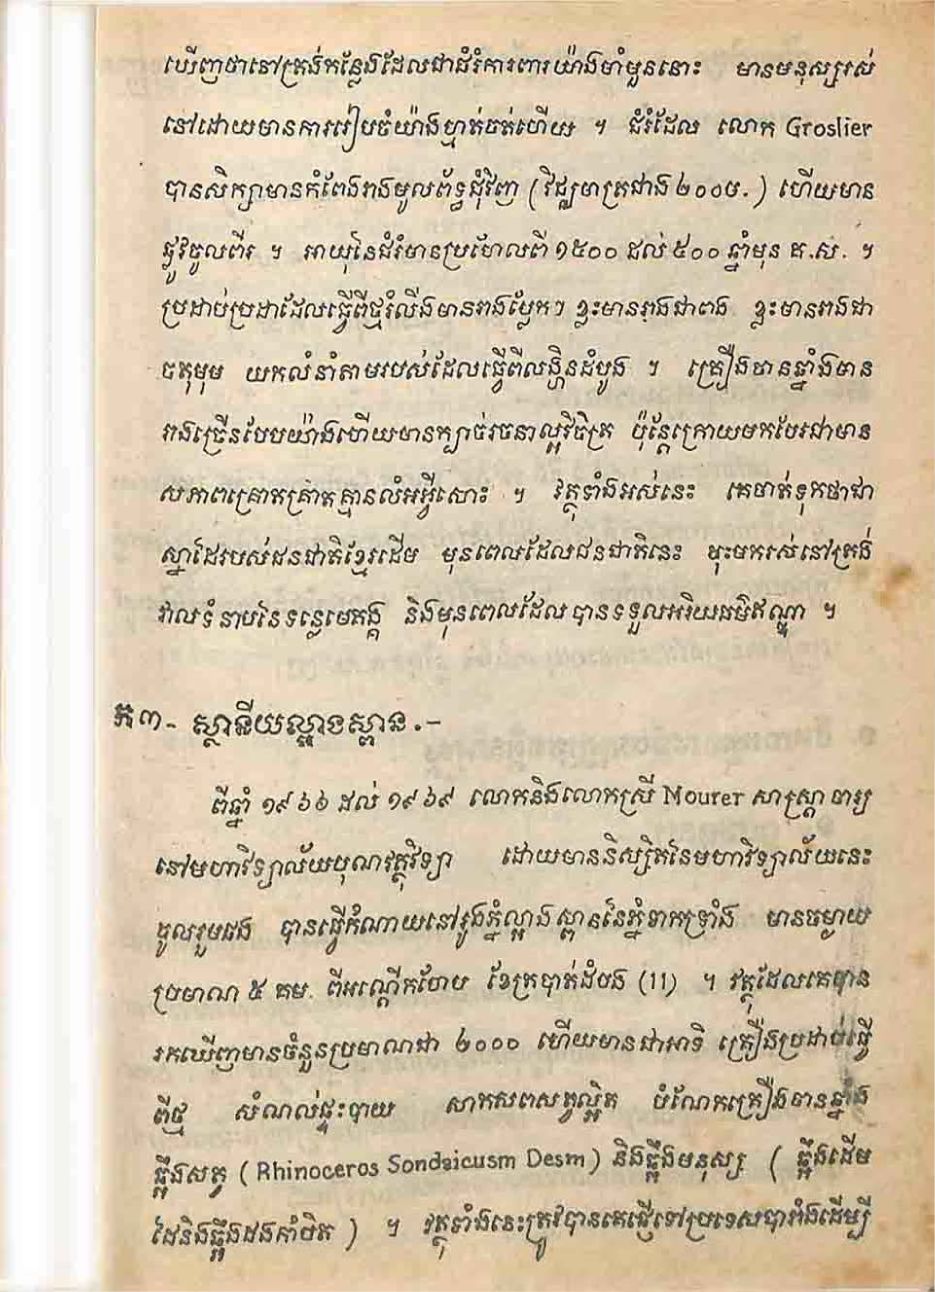 ឃើញថានៅត្រង់កន្លែងដែលជាជំរំការពារយ៉ាងមាំមួននោះ មានមនុស្សរស់
នៅដោយមានការរៀបចំយ៉ាងហ្មត់ចត់ហើយ ។ ជំរំដែល លោក Groslier
បានសិក្សាមានកំពែងរាងមូលព័ទ្ធជុំវិញ (វិជ្ឈមាត្រជាង ២០០ម.) ហើយមាន
ផ្លូវចូលពីរ ។ អាយុនៃជំរំមានប្រហែលពី ១៥០០ ដល់ ៥០០ ឆ្នាំមុន គ.ស. ។
ប្រដាប់ប្រដាដែលធ្វើពីថ្មរំលីងមានរាងប្លែកៗ ខ្លះមានរាងជាពង ខ្លះមានរាងជា
ចតុមុម យកលំនាំតាមរបស់ដែលធ្វើពីលង្ហិនដំបូង ។ គ្រឿងមានឆ្នាំងមាន
រាងច្រើនបែបយ៉ាងហើយមានក្បាច់រចនាល្អវិចិត្រ ប៉ុន្តែក្រោយមកបែរជាមាន
សភាពគ្រោតគ្រាតគ្មានលំអអ្វីសោះ ។ វត្ថុទាំងអស់នេះ គេចាត់ទុកថាជា
ស្នាដៃរបស់ជនជាតិខ្មែរដើម មុនពេលដែលជនជាតិនេះ ចុះមករស់នៅត្រង់
វាលទំនាបនៃទន្លេមេគង្គ និងមុនពេលដែលបានទទួលអរិយធម៌ឥណ្ឌា ។
ភ៣- ស្ថានីយល្អាងស្ពាន.-
ពីឆ្នាំ ១៩៦៦ ដល់ ១៩៦៩ លោកនិងលោកស្រី Mourer សាស្ត្រាចារ្យ
នៅមហាវិទ្យាល័យបុណវត្ថុវិទ្យា ដោយមាននិស្សិតនៃមហាវិទ្យាល័យនេះ
ចូលរួមផង បានធ្វើកំណាយនៅរូងភ្នំល្អាងស្ពាននៃភ្នំទាកទ្រាំង មានចម្ងាយ
ប្រមាណ ៥ គម. ពីអណ្តើកហែប ខែត្របាត់ដំបង (11) ។ វត្ថុដែលគេបាន
រកឃើញមានចំនួនប្រមាណជា ២០០០ ហើយមានជាអាទិ គ្រឿងប្រដាប់ធ្វើ
ពីថ្ម សំណល់ផ្ទះបាយ សាកសពសត្វល្អិត បំណែកគ្រឿងមានឆ្នាំង
ឆ្អឹងសត្វ ( Rhinoceros Sondaicusm Desm ) និងឆ្អឹងមនុស្ស ( ឆ្អឹងដើម
ដៃនិងឆ្អឹងដងកាំបិត ) ។ វត្ថុទាំងនេះត្រូវបានគេផ្ញើទៅប្រទេសបារាំងដើម្បី